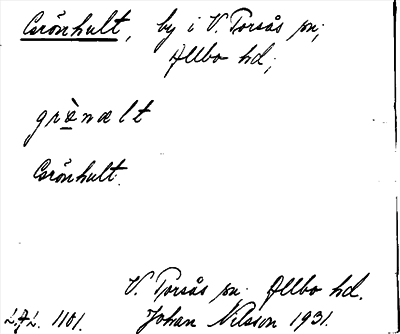 Grönhult, by i V. Torsås sn;
Allbo hd;
grænælt
Grönhult.
V. Torsås sn. Allbo hd.
L.A.L. 1101. Johan Nilsson 1931.